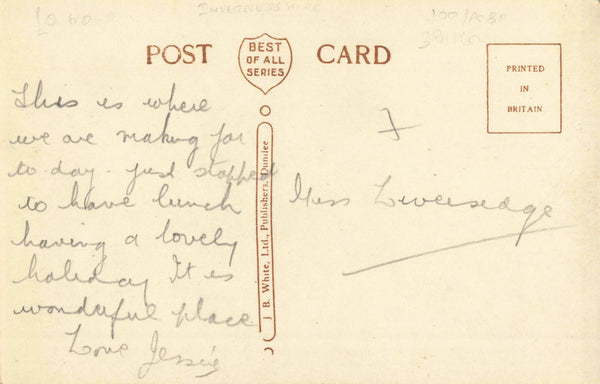 INVERNESSSHIRE
POST CARD
BEST
OF ALL
SERIES
PRINTED
IN
BRITAIN
This is where
we are making for
to day - just stopped
to have lunch
having a lovely
holiday It is
wonderful place
Love Jessie
J. B. White, Ltd., Publishers, Dundee
Miss Liversedge